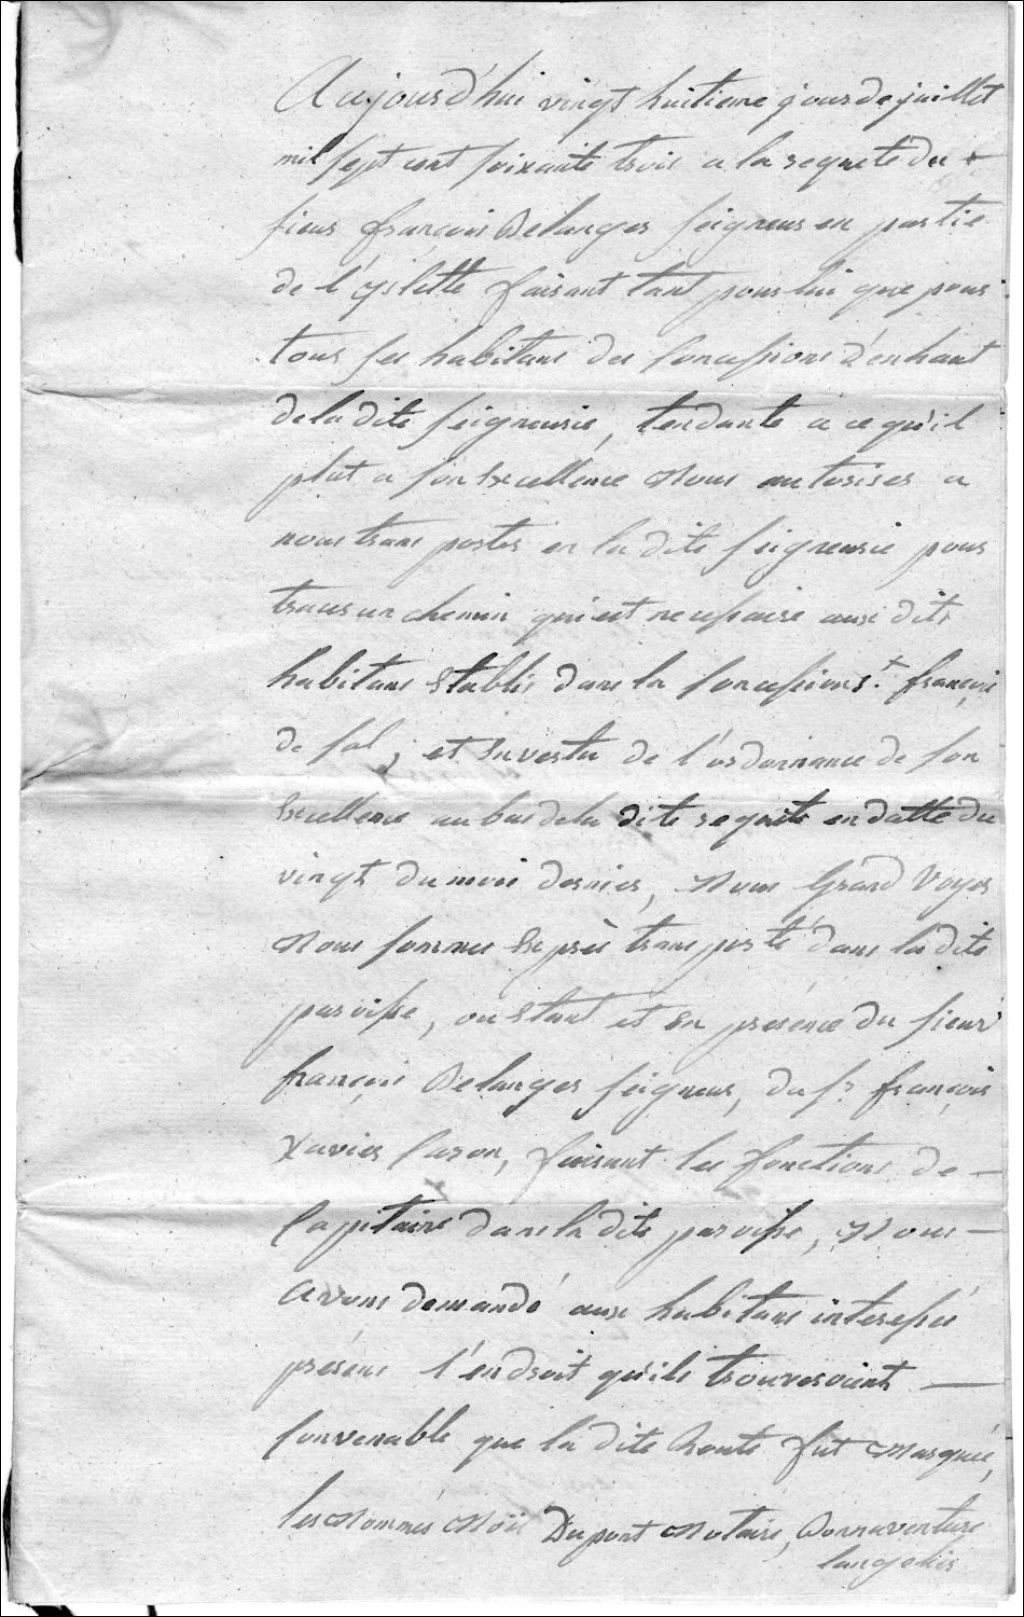 Aujourd'hui vingt huitieme jour de juillet
mil sept cent soixante trois a la requete du
sieur françois Belanger seigneur en partie
de l'yslette faisant tant pour lui que pour
tous ses habitans des Concessions d'enhaut
de la dite seigneurie, tendante a ce qu'il
plut a son Excellence Nous autoriser a
nous trans porter en la dite seigneurie pour
tracer un chemin qui est necessaire aux dits
habitans Etablis dans la Concession S.t françois
de Sal, et En vertu de l'ordonnance de son
Excellence au bas de la dite requete en datte du
vingt du mois dernier, Nous Grand Voyer
Nous sommes Exprès trans porté dans la dite
paroisse, ou Etant et En presence du sieur
françois Belanger seigneur, du S.r françois
Xavier Caron, faisant les fonctions de
Capitaine dans la dite paroisse, Nous
avons demandé aux habitans interessés
présens l'endroit qu'ils trouveroient
Convenable que la dite Route fut Marquée,
les Nommés Noël Dupont Notaire, Bonnaventure
Langelier